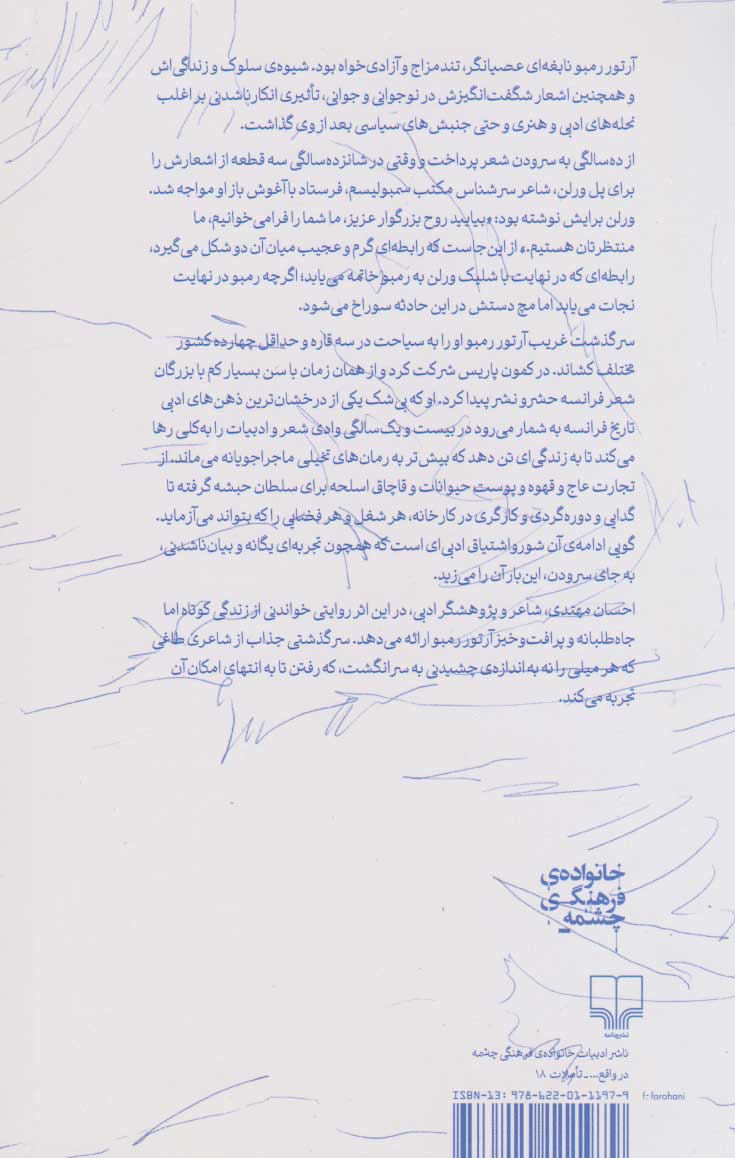 آرتور رمبو نابغه‌ای عصیانگر، تندمزاج و آزادی‌خواه بود. شیوه‌ی سلوک و زندگی‌اش
و همچنین اشعار شگفت‌انگیزش در نوجوانی و جوانی، تأثیری انکارناشدنی بر اغلب
نحله‌های ادبی و هنری و حتی جنبش‌های سیاسی بعد از وی گذاشت.
از ده‌سالگی به سرودن شعر پرداخت و وقتی در شانزده‌سالگی سه قطعه از اشعارش را
برای پل ورلن، شاعر سرشناس مکتب سمبولیسم، فرستاد با آغوش باز او مواجه شد.
ورلن برایش نوشته بود: «بیایید روح بزرگوار عزیز، ما شما را فرامی‌خوانیم، ما
منتظرتان هستیم.» از این‌جاست که رابطه‌ای گرم و عجیب میان آن دو شکل می‌گیرد،
رابطه‌ای که در نهایت با شلیک ورلن به رمبو خاتمه می‌یابد؛ اگرچه رمبو در نهایت
نجات می‌یابد اما مچ دستش در این حادثه سوراخ می‌شود.
سرگذشت غریب آرتور رمبو او را به سیاحت در سه قاره و حداقل چهارده کشور
مختلف کشاند. در کمون پاریس شرکت کرد و از همان زمان با سن بسیار کم با بزرگان
شعر فرانسه حشرو نشر پیدا کرد. او که بی‌شک یکی از درخشان‌ترین ذهن‌های ادبی
تاریخ فرانسه به شمار می‌رود در بیست و یک‌سالگی وادی شعر و ادبیات را به‌کلی رها
می‌کند تا به زندگی‌ای تن دهد که بیش‌تر به رمان‌های تخیلی ماجراجویانه می‌ماند. از
تجارت عاج و قهوه و پوست حیوانات و قاچاق اسلحه برای سلطان حبشه گرفته تا
گدایی و دوره‌گردی و کارگری در کارخانه، هر شغل و هر فضایی را که بتواند می‌آزماید.
گویی ادامه‌ی آن شور و اشتیاق ادبی‌ای است که همچون تجربه‌ای یگانه و بیان‌ناشدنی،
به جای سرودن، این‌بار آن را می‌زید.
احسان مهتدی، شاعر و پژوهشگر ادبی، در این اثر روایتی خواندنی از زندگی کوتاه اما
جاه‌طلبانه و پرافت‌وخیز آرتور رمبو ارائه می‌دهد. سرگذشتی جذاب از شاعری طاغی
که هر میلی را نه به اندازه‌ی چشیدنی به سرانگشت، که رفتن تا به انتهای امکان آن
تجربه می‌کند.
خانواده‌ی
فرهنگی
چشمه
نشرچشمه
ناشر ادبیات خانواده‌ی فرهنگی چشمه
در واقع... ـ تأملات ۱۸
ISBN-13: 978-622-01-1197-9
f: farahani